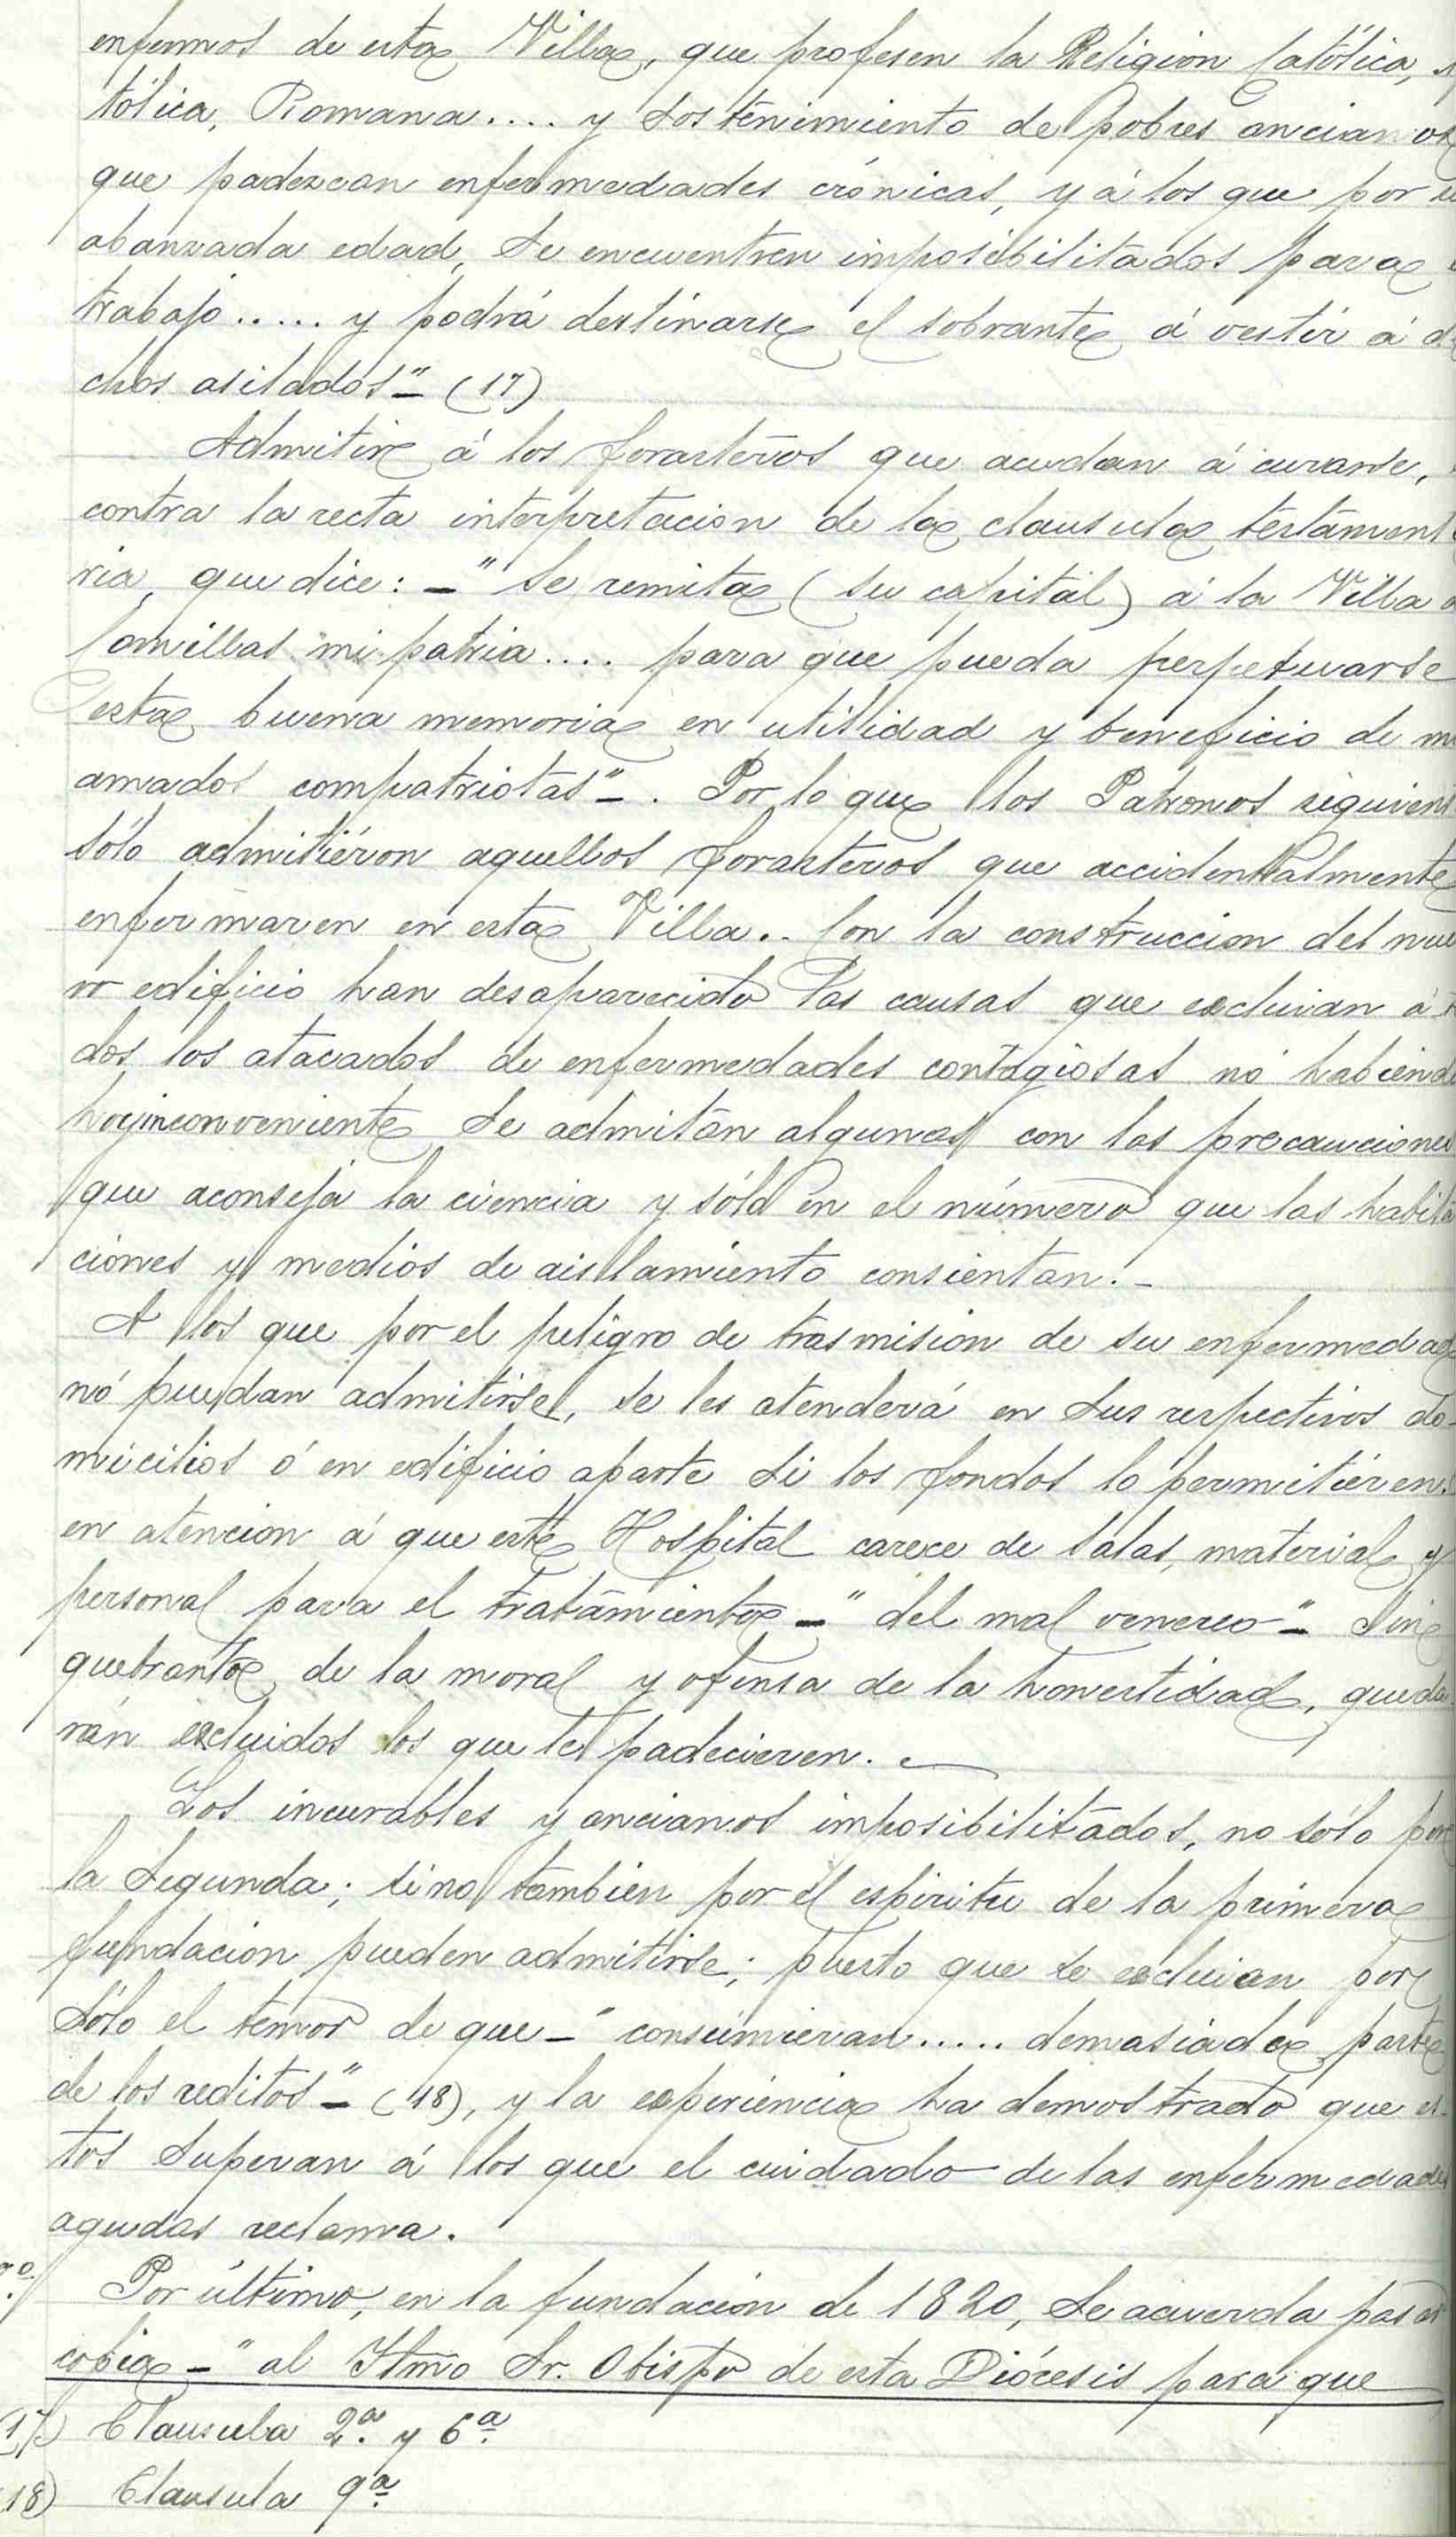 enfermos de esta Villa, que profesen la Religion Católica, 
tólica, Romana.... y sostenimiento de pobres ancianos
que padezcan enfermedades crónicas, y á los que por su
abanzada edad, se encuentren imposibilitados para
trabajo..... y podrá destinarse el sobrante á vestir á di
chos asilados"- (17)
Admitir á los forasteros que acudan á curarse,
contra la recta interpretacion de la clausula testament
ria, que dice: -" Se remita (su capital) á la Villa
Comillas mi patria.... para que pueda perpetuarse
esta buena memoria en utilidad y beneficio de m
amados compatriotas"-. Por lo que los Patronos siguient
sólo admitiéron aquellos forasteros que accidentalmente
enfermaren en esta Villa.. Con la construccion del nue
vo edificio han desaparecido las causas que excluian á t
dos los atacados de enfermedades contagiosas no habiend
hoy inconveniente se admitan algunas con las precauciones
que aconseja la ciencia y sólo en el número que las habita
ciones y medios de aislamiento consientan.-
A los que por el peligro de trasmision de su enfermedad
nó puedan admitirse, se les atenderá en sus respectivos do-
micilios ó en edificio aparte si los fondos lo permitiéren.
en atencion á que este Hospital carece de salas, material y
personal para el tratamiento -" del mal venereo"- Sin
quebranto de la moral y ofensa de la honestidad, queda
rán excluidos los que le padecieren.
Los incurables y ancianos imposibilitados, no sólo por
la segunda; sino tambien por el espiritu de la primera
fundacion pueden admitirse; puesto que se excluian por
sólo el temor de que -" consumieran..... demasiada parte
de los reditos"- (18), y la experiencia ha demostrado que es-
tos superan á los que el cuidado de las enfermedades
agudas reclama.
Por último, en la fundacion de 1820, se acuerda pasar
copia -" al Iltmo Sr. Obispo de esta Diócesis para que
17) Clausula 2ª y 6ª
18) Clausula 9ª